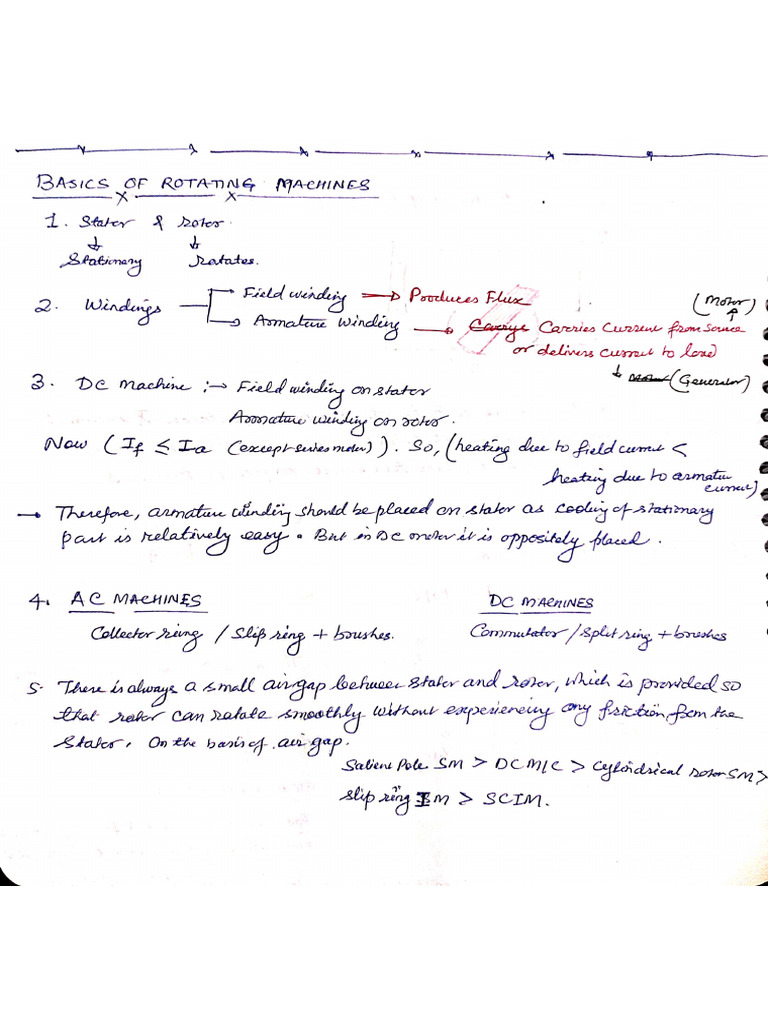 BASICS OF ROTATING MACHINES
1. Stator & rotor.
Stationary Rotates.
2. Windings Field winding → Produces Flux (Motor)
Armature winding → Carries Current from source
or delivers current to load
(Generator)
3. DC machine :→ Field winding on stator
Armature winding on rotor.
Now (If ≤ Ia (except series motor)). So, (heating due to field current <
heating due to armature
current)
→ Therefore, armature winding should be placed on stator as cooling of stationary
part is relatively easy. But in DC motor it is oppositely placed.
4. AC MACHINES DC MACHINES
Collector ring / Slip ring + brushes. Commutator / Split ring + brushes
5. There is always a small air gap between stator and rotor, which is provided so
that rotor can rotate smoothly without experiencing any friction from the
stator. On the basis of air gap.
Salient Pole SM > DC M/C > Cylindrical rotor SM >
Slip ring IM > SCIM.